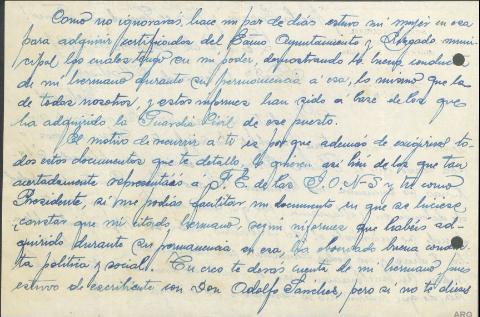 Como no ignorarás, hace un par de días estuvo mi mujer en esa
para adquirir certificados del Exmo Ayuntamiento y Juzgado muni-
cipal los cuales tengo en mi poder, demostrando la buena conducta
de mi hermano durante su permanencia á esa, lo mismo que la
de todos nosotros, y estos informes han sido a base de los que
ha adquirido la Guardia Civil de ese puesto.
El motivo de recurrir a ti es por que además de exigirnos to-
dos estos documentos que te detallo, lo quieren así bien de los que tan
acertadamente representáis á F. E. de las J.O.N-S y tú como
Presidente, si me podías facilitar un documento en que se hiciese
constar que mi citado hermano, según informes que habéis ad-
quirido durante su permanencia en esa, ha observado buena conduc-
ta política y social. Tu creo te darás cuenta de mi hermano, pues
estuvo de escribiente con Don Adolfo Sánchez, pero si no te dieses
ARG